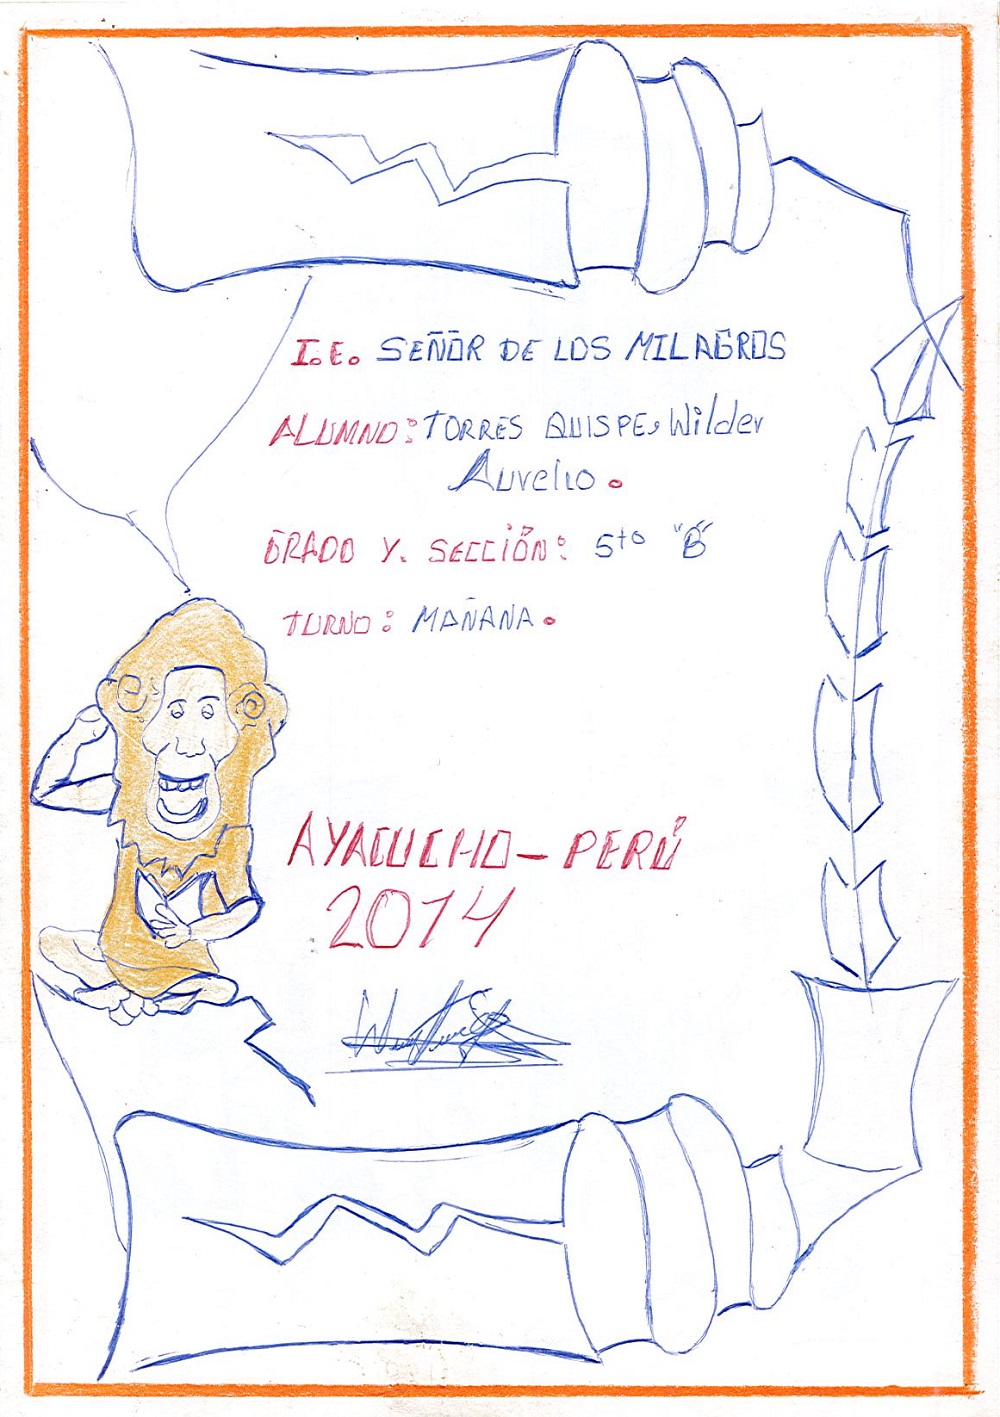 I.E. SEÑOR DE LOS MILAGROS
ALUMNO: TORRES QUISPE, Wilder
Aurelio.
GRADO Y. SECCIÓN: 5to "B"
TURNO: MAÑANA.
AYACUCHO - PERÚ
2014